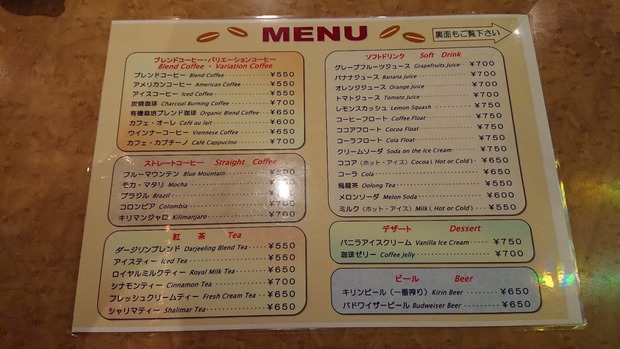 MENU
裏面もご覧下さい
ブレンドコーヒー・バリエーションコーヒー
Blend Coffee ・ Variation Coffee
ブレンドコーヒー Blend Coffee ¥550
アメリカンコーヒー American Coffee ¥550
アイスコーヒー Iced Coffee ¥550
炭焼珈琲 Charcoal Burning Coffee ¥700
有機栽培ブレンド珈琲 Organic Blend Coffee ¥650
カフェ・オーレ Café au lait ¥600
ウインナーコーヒー Viennese Coffee ¥650
カフェ・カプチーノ Café Cappuccino ¥700
ストレートコーヒー Straight Coffee
ブルーマウンテン Blue Mountain
モカ・マタリ Mocha
ブラジル Brazil
コロンビア Colombia
キリマンジャロ Kilimanjaro ¥700
紅 茶 Tea
ダージリンブレンド Darjeeling Blend Tea ¥550
アイスティー Iced Tea ¥550
ロイヤルミルクティー Royal Milk Tea ¥650
シナモンティー Cinnamon Tea ¥700
フレッシュクリームティー Fresh Cream Tea ¥650
シャリマティー Shalimar Tea ¥650
ソフトドリンク Soft Drink
グレープフルーツジュース Grapefruits Juice ¥700
バナナジュース Banana Juice ¥700
オレンジジュース Orange Juice ¥700
トマトジュース Tomato Juice ¥700
レモンスカッシュ Lemon Squash ¥750
コーヒーフロート Coffee Float ¥750
ココアフロート Cocoa Float ¥750
コーラフロート Cola Float ¥750
クリームソーダ Soda on the Ice Cream ¥750
ココア(ホット・アイス) Cocoa (Hot or Cold) ¥650
コーラ Cola ¥650
烏龍茶 Oolong Tea ¥550
メロンソーダ Melon Soda ¥600
ミルク(ホット・アイス) Milk (Hot or Cold) ¥550
デザート Dessert
バニラアイスクリーム Vanilla Ice Cream ¥750
珈琲ゼリー Coffee Jelly ¥700
ビール Beer
キリンビール(一番搾り) Kirin Beer ¥650
バドワイザービール Budweiser Beer ¥650